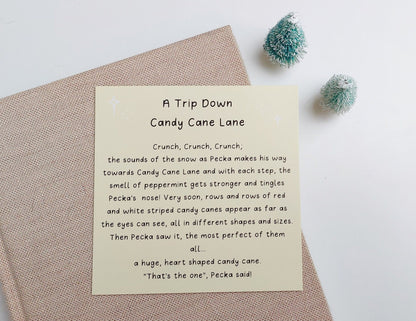 A Trip Down
Candy Cane Lane
Crunch, Crunch, Crunch;
the sounds of the snow as Pecka makes his way
towards Candy Cane Lane and with each step, the
smell of peppermint gets stronger and tingles
Pecka's nose! Very soon, rows and rows of red
and white striped candy canes appear as far as
the eyes can see, all in different shapes and sizes.
Then Pecka saw it, the most perfect of them
all...
a huge, heart shaped candy cane.
"That's the one", Pecka said!